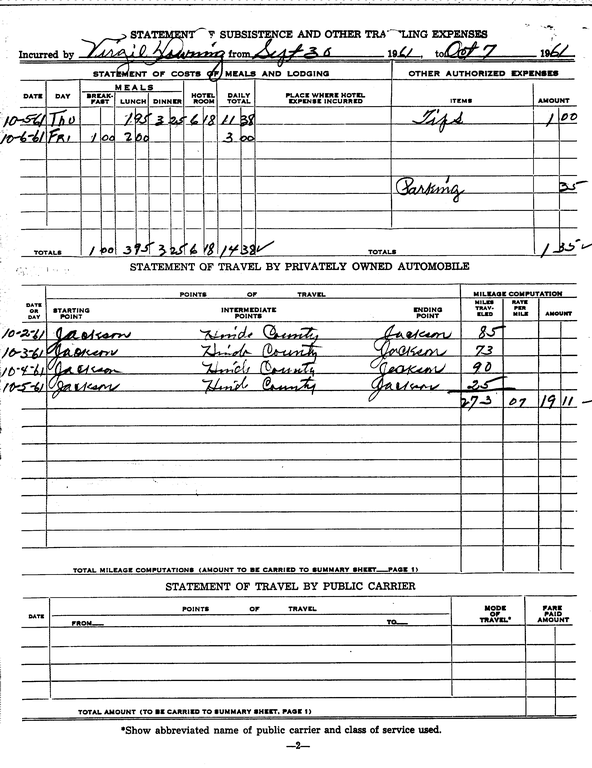 STATEMENT OF SUBSISTENCE AND OTHER TRAVELLING EXPENSES
Incurred by Virgil Downing from Sept 30 1961, to Oct 7 1961
STATEMENT OF COSTS OF MEALS AND LODGING OTHER AUTHORIZED EXPENSES
DATE DAY MEALS BREAK-FAST LUNCH DINNER HOTEL ROOM DAILY TOTAL PLACE WHERE HOTEL EXPENSE INCURRED ITEMS AMOUNT
10-5-61 Thu 195 3 25 6 18 11 38 Tips 1 00
10-6-61 FRI 1 00 200 3 00
Parking 35
TOTALS 1 00 395 3 25 6 18 14 38 TOTALS 1 35
STATEMENT OF TRAVEL BY PRIVATELY OWNED AUTOMOBILE
DATE OR DAY POINTS OF TRAVEL MILEAGE COMPUTATION
STARTING POINT INTERMEDIATE POINTS ENDING POINT MILES TRAV-ELED RATE PER MILE AMOUNT
10-2-61 Jackson Hinds County Jackson 85
10-3-61 Jackson Hinds County Jackson 73
10-4-61 Jackson Hinds County Jackson 90
10-5-61 Jackson Hinds County Jackson 25
273 07 19 11
TOTAL MILEAGE COMPUTATIONS (AMOUNT TO BE CARRIED TO SUMMARY SHEET PAGE 1)
STATEMENT OF TRAVEL BY PUBLIC CARRIER
DATE POINTS OF TRAVEL MODE OF TRAVEL* FARE PAID AMOUNT
FROM TO
TOTAL AMOUNT (TO BE CARRIED TO SUMMARY SHEET, PAGE 1)
*Show abbreviated name of public carrier and class of service used.
—2—